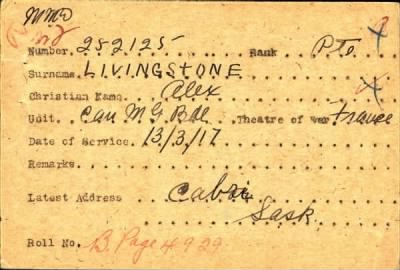 MMD
Number. 252125 Rank Pte.
Surname. LIVINGSTONE
Christian Name. Alex
Unit. Can M G Bde Theatre of war. France
Date of Service. 13/3/17
Remarks.
Latest Address
Sask.
Roll No. B. Page 4929